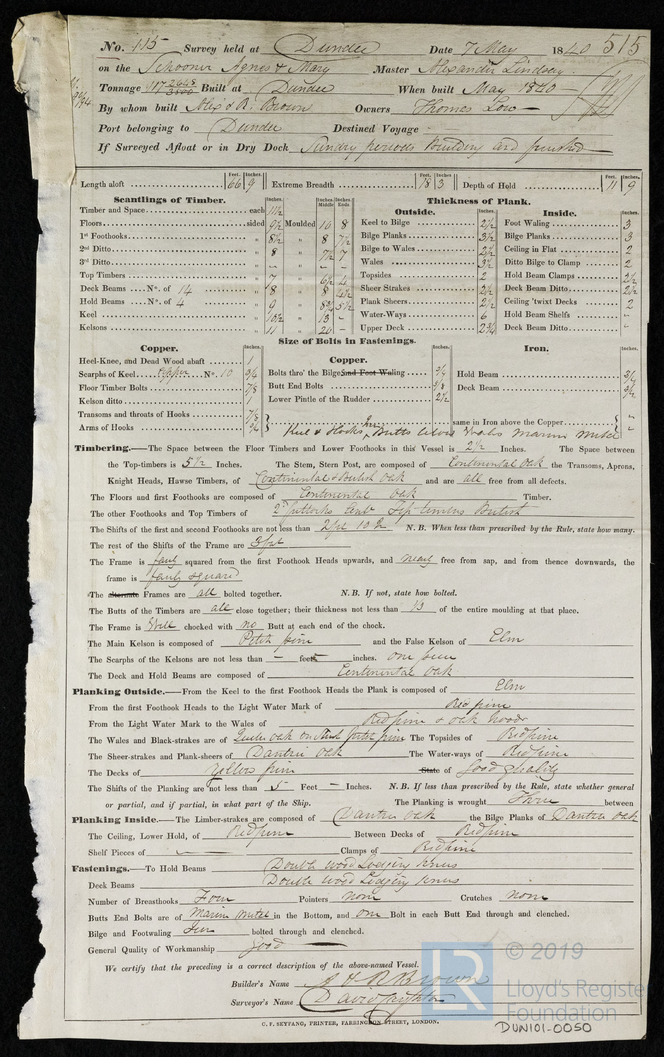 No. 115 Survey held at Dundee Date 7 May 1840 515
on the Schooner Agnes & Mary Master Alexander Lindsay
Tonnage 117 2645/3500 Built at Dundee When built May 1840
By whom built Alex & R. Brown Owners Thomas Low
Port belonging to Dundee Destined Voyage
If Surveyed Afloat or in Dry Dock Sundry periods building and finished
Feet. Inches. Feet. Inches. Feet. Inches.
Length aloft 66 9 Extreme Breadth 18 3 Depth of Hold 11 9
Scantlings of Timber. Thickness of Plank.
Inches. Inches Middle Inches Ends Outside. Inches. Inside. Inches.
Timber and Space each 11½ Keel to Bilge 2½ Foot Waling 3
Floors sided 9½ Moulded 16 8 Bilge Planks 3½ Bilge Planks 3
1st Foothooks „ 8½ „ 8 7½ Bilge to Wales 2½ Ceiling in Flat 2
2nd Ditto „ 8 „ 7½ 7 Wales 3½ Ditto Bilge to Clamp 2
3rd Ditto „ - „ - - Topsides 2 Hold Beam Clamps 2½
Top Timbers „ 7 „ 6½ 4 Sheer Strakes 2½ Deck Beam Ditto 2½
Deck Beams No. of 14 „ 8 „ 8 4½ Plank Sheers 2½ Ceiling 'twixt Decks 2
Hold Beams No. of 4 „ 9 „ 8¾ 5½ Water-Ways 6 Hold Beam Shelfs -
Keel „ 10½ „ 13 - Upper Deck 2¾ Deck Beam Ditto -
Kelsons „ 11 „ 20 -
Size of Bolts in Fastenings.
Copper. Inches. Copper. Inches. Iron. Inches.
Heel-Knee, and Dead Wood abaft 1
Scarphs of Keel Copper No. 10 ¾ Bolts thro' the Bilge and Foot Waling ¾ Hold Beam ¾
Floor Timber Bolts 7/8 Butt End Bolts 5/8 Deck Beam
Kelson ditto 1 Lower Pintle of the Rudder 2½
Transoms and throats of Hooks 7/8
Arms of Hooks ¾ same in Iron above the Copper
Keel & Hooks In Butts above Wales Marine Metal
Timbering.—The Space between the Floor Timbers and Lower Foothooks in this Vessel is 2½ Inches. The Space between
the Top-timbers is 5½ Inches. The Stem, Stern Post, are composed of Continental Oak the Transoms, Aprons,
Knight Heads, Hawse Timbers, of Continental & British Oak and are all free from all defects.
The Floors and first Foothooks are composed of Continental Oak Timber.
The other Foothooks and Top Timbers of 2nd futtocks Cont Top timbers British
The Shifts of the first and second Foothooks are not less than 2ft 10In N. B. When less than prescribed by the Rule, state how many.
The rest of the Shifts of the Frame are 3ft
The Frame is fairly squared from the first Foothook Heads upwards, and nearly free from sap, and from thence downwards, the
frame is fairly squared
The alternate Frames are all bolted together. N. B. If not, state how bolted.
The Butts of the Timbers are all close together; their thickness not less than 1/3 of the entire moulding at that place.
The Frame is Well chocked with no Butt at each end of the chock.
The Main Kelson is composed of Pitch pine and the False Kelson of Elm
The Scarphs of the Kelsons are not less than - feet inches. one piece
The Deck and Hold Beams are composed of Continental Oak
Planking Outside.—From the Keel to the first Foothook Heads the Plank is composed of Elm
From the first Foothook Heads to the Light Water Mark of Red pine
From the Light Water Mark to the Wales of Red pine & oak Wood
The Wales and Black-strakes are of pitch pine The Topsides of Red pine
The Sheer-strakes and Plank-sheers of Dantzic Oak The Water-ways of Red pine
The Decks of Yellow pine State of Good Quality
The Shifts of the Planking are not less than 5 Feet - Inches. N. B. If less than prescribed by the Rule, state whether general
or partial, and if partial, in what part of the Ship. The Planking is wrought Three between
Planking Inside.—The Limber-strakes are composed of Dantzic oak the Bilge Planks of Dantzic oak
The Ceiling, Lower Hold, of Red pine Between Decks of Red pine
Shelf Pieces of Clamps of Red pine
Fastenings.—To Hold Beams Double Wood Lodging Knees
Deck Beams Double Wood Lodging Knees
Number of Breasthooks Four Pointers none Crutches none
Butts End Bolts are of Marine Metal in the Bottom, and one Bolt in each Butt End through and clenched.
Bilge and Footwaling bolted through and clenched.
General Quality of Workmanship Good
We certify that the preceding is a correct description of the above-named Vessel.
Builder's Name A & R Brown
Surveyor's Name David Crighton
C. F. SEYFANG, PRINTER, FARRINGDON STREET, LONDON.
© 2019
LR Lloyd's Register
Foundation
DUN101-0050